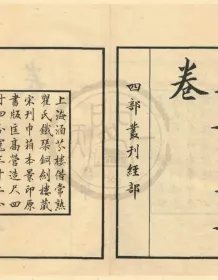 卷
四部叢刊經部
上海涵芬樓借常熟
瞿氏鐵琴銅劍樓藏
宋刊巾箱本景印原
書版匡高營造尺四